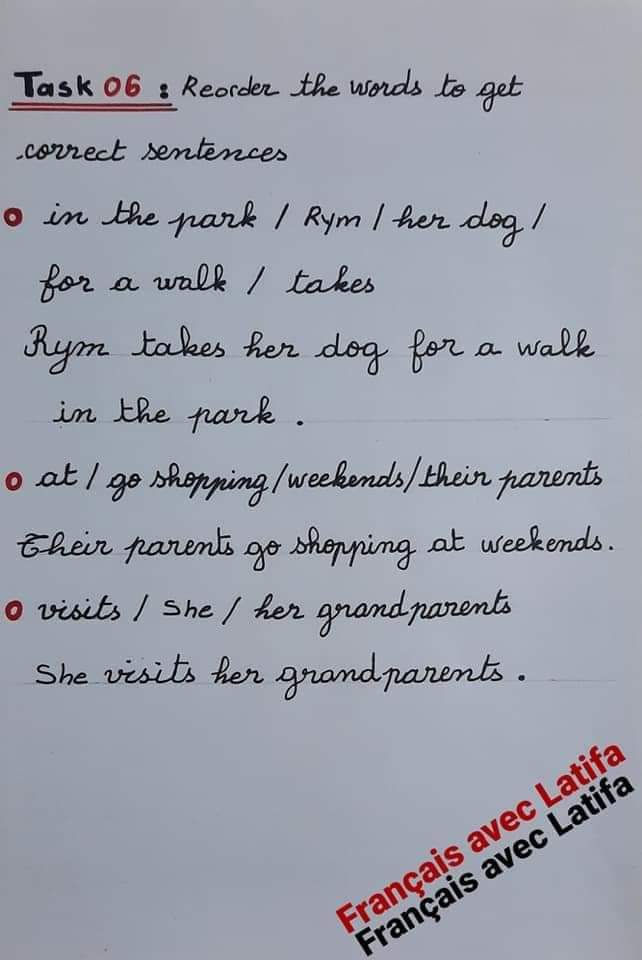 Task 06 : Reorder the words to get
correct sentences
in the park / Rym / her dog /
for a walk / takes
Rym takes her dog for a walk
in the park .
at / go shopping / weekends / their parents
Their parents go shopping at weekends.
visits / She / her grandparents
She visits her grandparents .
Français avec Latifa
Français avec Latifa